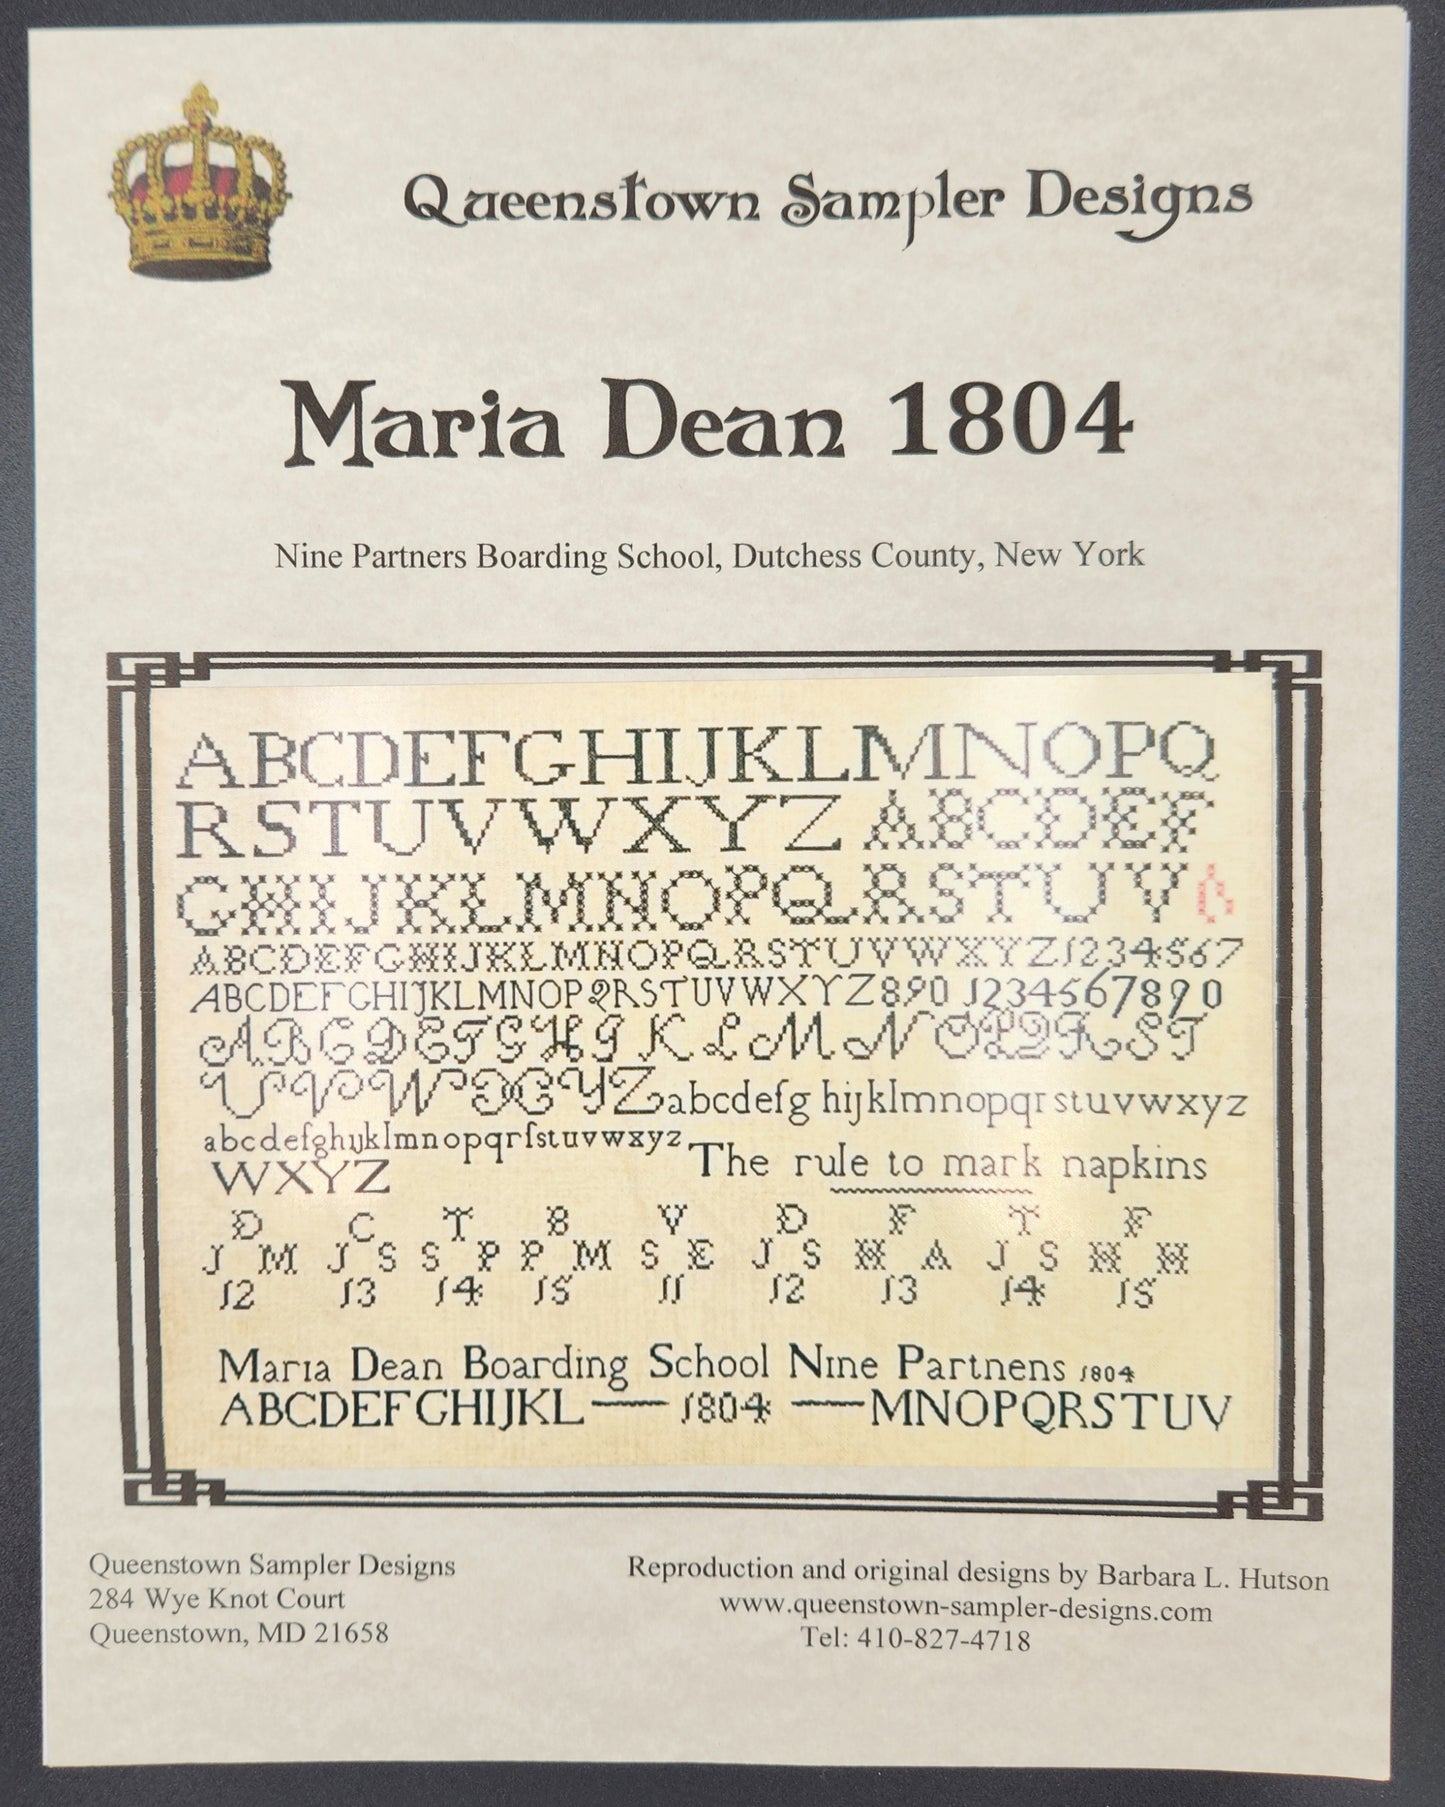 Queenstown Sampler Designs
Maria Dean 1804
Nine Partners Boarding School, Dutchess County, New York
ABCDEFGHIJKLMNOPQ
RSTUVWXYZ ABCDEF
GHIJKLMNOPQRSTUV
ABCDEFGHIJKLMNOPQRSTUVWXYZ1234567
ABCDEFGHIJKLMNOPQRSTUVWXYZ890 1234567890
ABCDEFGHIJKLMNOPQRST
UVWXYZabcdefg hijklmnopqrstuvwxyz
abcdefghijklmnopqrſstuvwxyz
WXYZ
The rule to mark napkins
D C T B V D F T F
J M J S S P P M S E J S H A J S H H
12 13 14 15 11 12 13 14 15
Maria Dean Boarding School Nine Partnens 1804
ABCDEFGHIJKL — 1804 — MNOPQRSTUV
Queenstown Sampler Designs
284 Wye Knot Court
Queenstown, MD 21658
Reproduction and original designs by Barbara L. Hutson
www.queenstown-sampler-designs.com
Tel: 410-827-4718